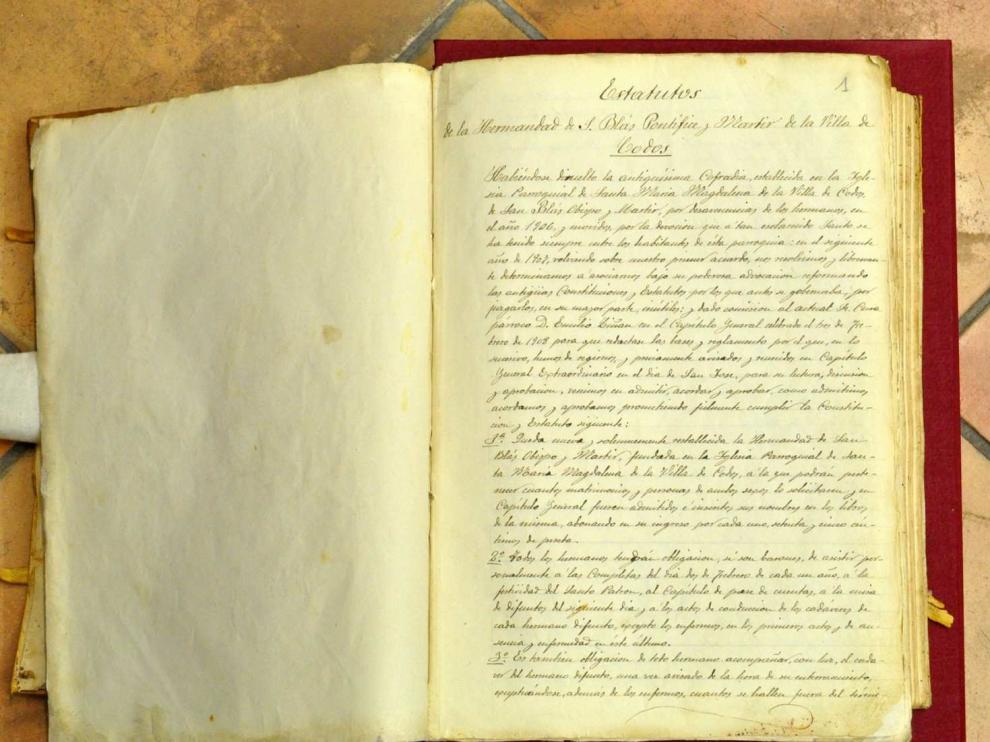 1
Estatutos
de la Hermandad de S. Blás Pontifice y Martir de la Villa de
Codos.
Habiéndose disuelto la antiquísima Cofradia, establecida en la Igle-
sia Parroquial de Santa Maria Magdalena de la Villa de Codos,
de San Blás Obispo y Martir, por desavenencias de los hermanos, en
el año 1906, y movidos, por la devocion que a tan esclarecido Santo se
ha tenido siempre entre los habitantes de ésta parroquia: en el siguiente
año de volviendo sobre nuestro primer acuerdo, nos resolvimos y libremen-
te determinamos a asociarnos bajo su poderosa advocacion reformando
las antigüas Constituciones y Estatutos por los que antes se gobernaba, por
juzgarlos, en su mayor parte, inútiles: y dado comision al actual Sr. Cura
párroco D. Emilio Liñan en el Capitulo General celebrado el tres de Fe-
brero de 1908 para que redactase las bases y reglamento por el que, en lo
sucesivo, hemos de regirnos, y previamente avisados, y reunidos en Capitulo
General Extraordinario en el dia de San Jose, para su lectura, discusion
y aprobacion, venimos en admitir, acordar y aprobar, como admitimos,
acordamos y aprobamos prometiendo fielmente cumplir la Constitu-
cion y Estatuto siguiente:
1º Queda nueva y solemnemente restablecida la Hermandad de San
Blás Obispo y Martir, fundada en la Iglesia Parroquial de San-
ta Maria Magdalena de la Villa de Codos, a la que podrán perte-
necer cuantos matrimonios y personas de ambos sexos lo solicitaren y en
Capitulo General fueren admitidos é inscritos sus nombres en los libros
de la misma, abonando en su ingreso por cada uno, setenta y cinco cen-
timos de peseta.
2º Todos los hermanos tendrán obligacion, si son varones, de asistir per-
sonalmente a las Completas del dia dos de Febrero de cada un año, a la
festividad del Santo Patron, al Capitulo de pase de cuentas, a la misa
de difuntos del siguiente dia y a los actos de conduccion de los cadáveres de
cada hermano difunto, excepto los enfermos, en los primeros actos y de au-
sencia y enfermedad en éste último.
3º Es tambien obligacion de todo hermano acompañar, con luz, el cada-
ver del hermano difunto, una vez avisado de la hora de su enterramiento,
exceptuándose, ademas de los enfermos, cuantos se hallen fuera del térmi-